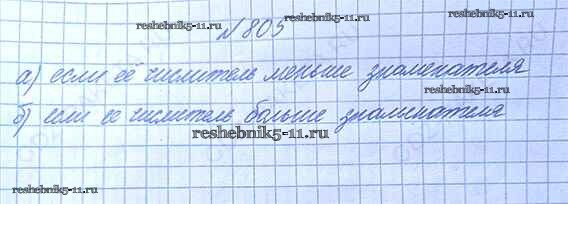 reshebnik5-11.ru
№ 805
reshebnik5-11.ru
а) если её числитель меньше знаменателя
б) если ее числитель больше знаменателя
reshebnik5-11.ru
reshebnik5-11.ru